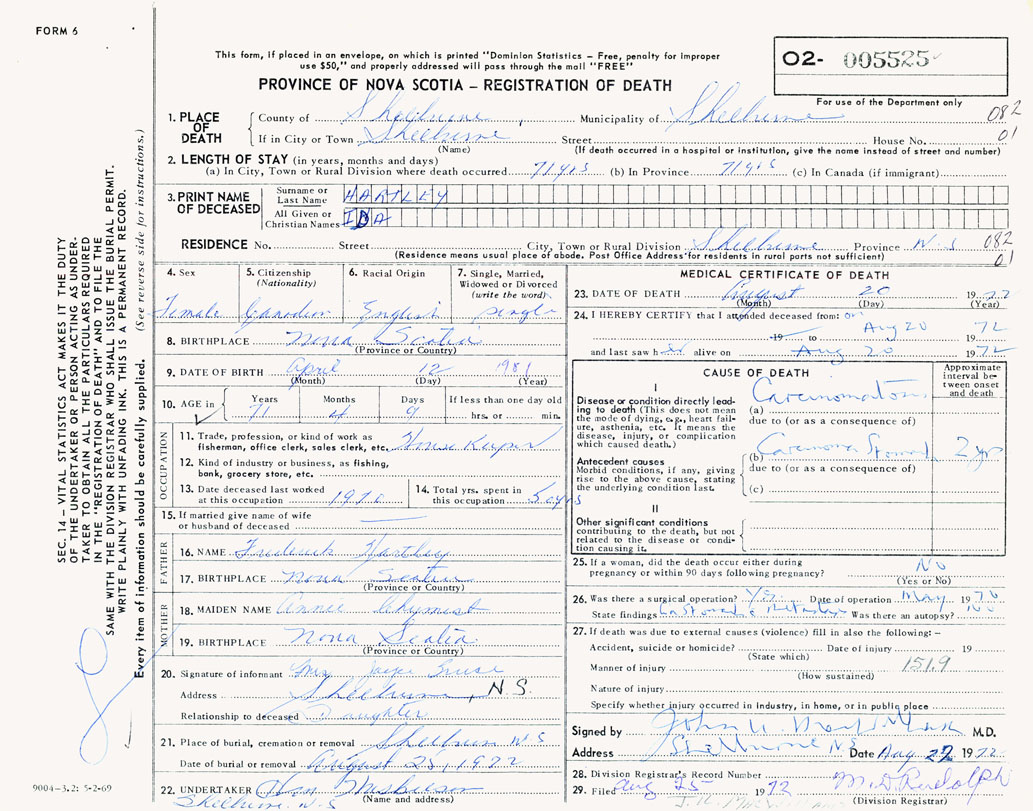 FORM 6
This form, if placed in an envelope, on which is printed "Dominion Statistics – Free, penalty for Improper
use $50," and properly addressed will pass through the mail "FREE"
PROVINCE OF NOVA SCOTIA – REGISTRATION OF DEATH
02- 005525
For use of the Department only
082
01
1. PLACE OF DEATH
County of Shelburne Municipality of Shelburne
If in City or Town Shelburne Street House No.
(Name) (If death occurred in a hospital or institution, give the name instead of street and number)
2. LENGTH OF STAY (in years, months and days)
(a) In City, Town or Rural Division where death occurred 71 yrs (b) In Province 71 yrs (c) In Canada (if immigrant)
3. PRINT NAME OF DECEASED
Surname or Last Name HARTLEY
All Given or Christian Names IDA
RESIDENCE No. Street City, Town or Rural Division Shelburne Province N.S 082
01
(Residence means usual place of abode. Post Office Address for residents in rural parts not sufficient)
4. Sex
Female
5. Citizenship
(Nationality)
Canadian
6. Racial Origin
English
7. Single, Married,
Widowed or Divorced
(write the word)
Single
8. BIRTHPLACE Nova Scotia
(Province or Country)
9. DATE OF BIRTH April 12 1981
(Month) (Day) (Year)
10. AGE in
Years Months Days If less than one day old
71 4 9 hrs. or min.
OCCUPATION
11. Trade, profession, or kind of work as
fisherman, office clerk, sales clerk, etc. House Keeper
12. Kind of industry or business, as fishing,
bank, grocery store, etc.
13. Date deceased last worked
at this occupation 1970
14. Total yrs. spent in
this occupation 50 yrs
15. If married give name of wife
or husband of deceased
FATHER
16. NAME Frederick Hartley
17. BIRTHPLACE Nova Scotia
(Province or Country)
MOTHER
18. MAIDEN NAME Annie Chymist
19. BIRTHPLACE Nova Scotia
(Province or Country)
20. Signature of informant Mrs Joyce
Address Shelburne, N.S.
Relationship to deceased Daughter
21. Place of burial, cremation or removal Shelburne N.S
Date of burial or removal August 23, 1972
22. UNDERTAKER
(Name and address)
Shelburne N.S
MEDICAL CERTIFICATE OF DEATH
23. DATE OF DEATH August 20 1972
(Month) (Day) (Year)
24. I HEREBY CERTIFY that I attended deceased from: on
19 to Aug 20 1972
and last saw her alive on Aug 20 1972
CAUSE OF DEATH
Approximate
interval be-
tween onset
and death
I
Disease or condition directly lead-
ing to death (This does not mean
the mode of dying, e.g., heart fail-
ure, asthenia, etc. It means the
disease, injury, or complication
which caused death.)
(a) Carcinomatosis
due to (or as a consequence of)
Antecedent causes
Morbid conditions, if any, giving
rise to the above cause, stating
the underlying condition last.
(b) Carcinoma Stomach 2 yrs
due to (or as a consequence of)
(c)
II
Other significant conditions
contributing to the death, but not
related to the disease or condi-
tion causing it.
25. If a woman, did the death occur either during
pregnancy or within 90 days following pregnancy? No
(Yes or No)
26. Was there a surgical operation? Yes Date of operation May 1970
State findings Was there an autopsy? No
27. If death was due to external causes (violence) fill in also the following: –
Accident, suicide or homicide? Date of injury 19
(State which)
Manner of injury 151.9
(How sustained)
Nature of injury
Specify whether injury occurred in industry, in home, or in public place
Signed by John M.D.
Address Shelburne N.S Date Aug 22 1972
28. Division Registrar's Record Number
29. Filed Aug 25 1972 M.D. Rudolph
(Division Registrar)
SEC. 14 – VITAL STATISTICS ACT MAKES IT THE DUTY
OF THE UNDERTAKER OR PERSON ACTING AS UNDER-
TAKER TO OBTAIN ALL THE PARTICULARS REQUIRED
IN THE "REGISTRATION OF DEATH" AND TO FILE THE
SAME WITH THE DIVISION REGISTRAR WHO SHALL ISSUE THE BURIAL PERMIT.
WRITE PLAINLY WITH UNFADING INK. THIS IS A PERMANENT RECORD.
Every item of information should be carefully supplied. (See reverse side for instructions.)
9004-3.2: 5-2-69